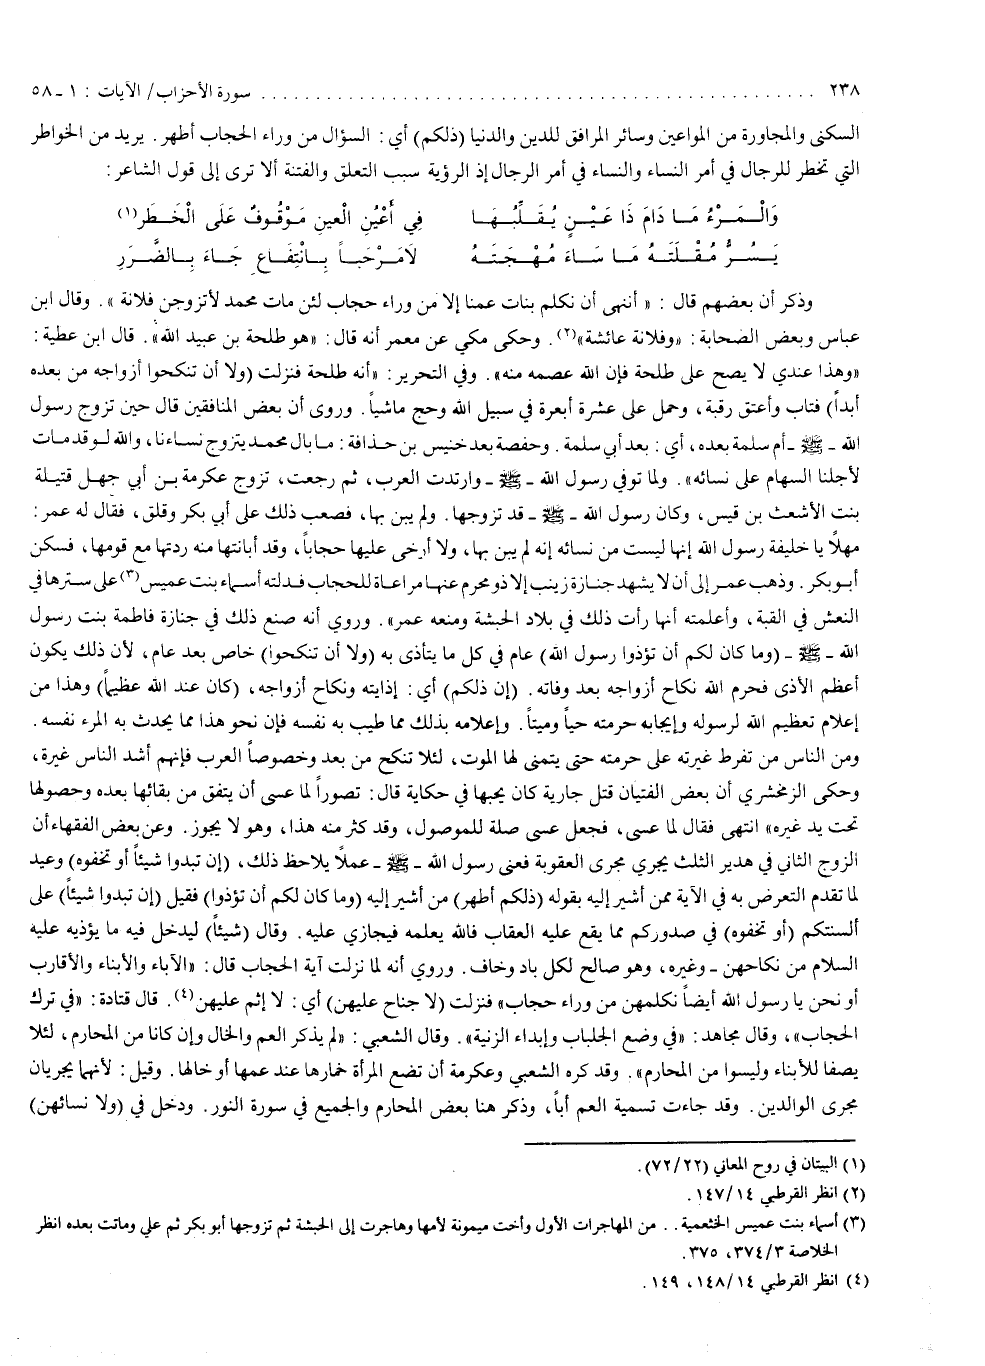 ٢٣٨ ............................................................ سورة الأحزاب/ الآيات : ١ ـ ٥٨
السكنى والمجاورة من المواعين وسائر المرافق للدين والدنيا (ذلكم) أي : السؤال من وراء الحجاب أطهر . يريد من الخواطر
التي تخطر للرجال في أمر النساء والنساء في أمر الرجال إذ الرؤية سبب التعلق والفتنة ألا ترى إلى قول الشاعر :
وَالْمَرْءُ مَا دَامَ ذَا عَيْنٍ يُقَلِّبُهَا فِي أَعْيُنِ الْعينِ مَوْقُوفٌ عَلَى الْخَطَرِ(١)
يَسُرُّ مُقْلَتَهُ مَا سَاءَ مُهْجَتَهُ لَامَرْحَباً بِانْتِفَاعٍ جَاءَ بِالضَّرَرِ
وذكر أن بعضهم قال : « أننهى أن نكلم بنات عمنا إلا من وراء حجاب لئن مات محمد لأتزوجن فلانة » . وقال ابن
عباس وبعض الصحابة : «وفلانة عائشة»(٢) . وحكى مكي عن معمر أنه قال: «هو طلحة بن عبيد الله». قال ابن عطية :
«وهذا عندي لا يصح على طلحة فإن الله عصمه منه» . وفي التحرير: «أنه طلحة فنزلت (ولا أن تنكحوا أزواجه من بعده
أبداً) فتاب وأعتق رقبة، وحمل على عشرة أبعرة في سبيل الله وحج ماشياً. وروى أن بعض المنافقين قال حين تزوج رسول
الله ـ ﷺ ـ أم سلمة بعده، أي : بعد أبي سلمة . وحفصة بعد خنيس بن حذافة : ما بال محمد يتزوج نساءنا، والله لو قد مات
لأجلنا السهام على نسائه» . ولما توفي رسول الله ـ ﷺ ـ وارتدت العرب، ثم رجعت، تزوج عكرمة بن أبي جهل قتيلة
بنت الأشعث بن قيس، وكان رسول الله ـ ﷺ ـ قد تزوجها. ولم يبن بها، فصعب ذلك على أبي بكر وقلق، فقال له عمر :
مهلاً يا خليفة رسول الله إنها ليست من نسائه إنه لم يبن بها، ولا أرخى عليها حجاباً، وقد أبانتها منه ردتها مع قومها، فسكن
أبو بكر . وذهب عمر إلى أن لا يشهد جنازة زينب إلا ذو محرم عنها مراعاة للحجاب فدلته أسماء بنت عميس(٣) على سترها في
النعش في القبة، وأعلمته أنها رأت ذلك في بلاد الحبشة ومنعه عمر» . وروي أنه صنع ذلك في جنازة فاطمة بنت رسول
الله ـ ﷺ ـ (وما كان لكم أن تؤذوا رسول الله) عام في كل ما يتأذى به (ولا أن تنكحوا) خاص بعد عام، لأن ذلك يكون
أعظم الأذى فحرم الله نكاح أزواجه بعد وفاته . (إن ذلكم) أي : إذايته ونكاح أزواجه، (كان عند الله عظيماً) وهذا من
إعلام تعظيم الله لرسوله وإيجابه حرمته حياً وميتاً . وإعلامه بذلك مما طيب به نفسه فإن نحو هذا مما يحدث به المرء نفسه .
ومن الناس من تفرط غيرته على حرمته حتى يتمنى لها الموت، لئلا تنكح من بعد وخصوصاً العرب فإنهم أشد الناس غيرة،
وحكى الزمخشري أن بعض الفتيان قتل جارية كان يحبها في حكاية قال: تصوراً لما عسى أن يتفق من بقائها بعده وحصولها
تحت يد غيره» انتهى فقال لما عسى، فجعل عسى صلة للموصول، وقد كثر منه هذا، وهو لا يجوز . وعن بعض الفقهاء أن
الزوج الثاني في هدير الثلث يجري مجرى العقوبة فعنى رسول الله ـ ﷺ ـ عملاً يلاحظ ذلك، (إن تبدوا شيئاً أو تخفوه) وعيد
لما تقدم التعرض به في الآية ممن أشير إليه بقوله (ذلكم أطهر) من أشير إليه (وما كان لكم أن تؤذوا) فقيل (إن تبدوا شيئاً) على
ألسنتكم (أو تخفوه) في صدوركم مما يقع عليه العقاب فالله يعلمه فيجازي عليه. وقال (شيئاً) ليدخل فيه ما يؤذيه عليه
السلام من نكاحهن ـ وغيره، وهو صالح لكل باد وخاف. وروي أنه لما نزلت آية الحجاب قال: «الآباء والأبناء والأقارب
أو نحن يا رسول الله أيضاً نكلمهن من وراء حجاب» فنزلت (لا جناح عليهن) أي : لا إثم عليهن(٤). قال قتادة : «في ترك
الحجاب»، وقال مجاهد: «في وضع الجلباب وإبداء الزنية». وقال الشعبي : «لم يذكر العم والخال وإن كانا من المحارم، لئلا
يصفا للأبناء وليسوا من المحارم» . وقد كره الشعبي وعكرمة أن تضع المرأة خمارها عند عمها أو خالها . وقيل : لأنهما يجريان
مجرى الوالدين . وقد جاءت تسمية العم أباً، وذكر هنا بعض المحارم والجميع في سورة النور . ودخل في (ولا نسائهن)
(١) البيتان في روح المعاني (٧٢/٢٢) .
(٢) انظر القرطبي ١٤٧/١٤ .
(٣) أسماء بنت عميس الخثعمية . . من المهاجرات الأول وأخت ميمونة لأمها وهاجرت إلى الحبشة ثم تزوجها أبو بكر ثم علي وماتت بعده انظر
الخلاصة ٣٧٤/٣، ٣٧٥ .
(٤) انظر القرطبي ١٤٨/١٤، ١٤٩ .